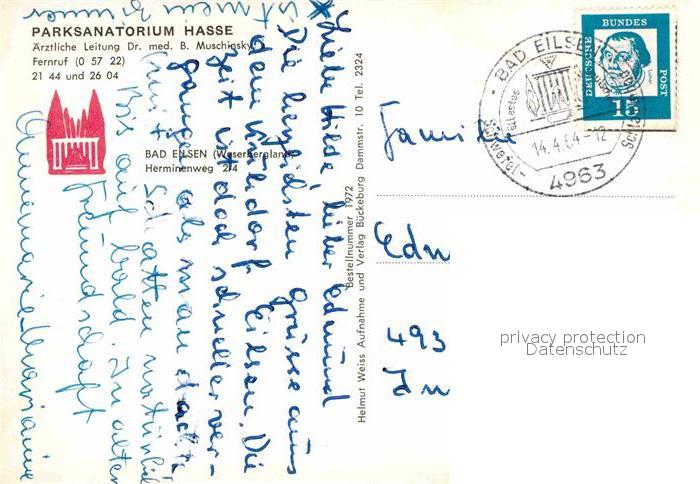 PARKSANATORIUM HASSE
Ärztliche Leitung Dr. med. B. Muschinsky
Fernruf (0 57 22)
21 44 und 26 04
BAD EILSEN (Weserbergland)
Herminenweg 2/4
Liebe Hilde lieber Edmund
Die herzlichsten Grüsse aus
dem Kurdorf Eilsen. Die
Zeit ist doch schneller ver-
gangen als man dachte
mit Schatten natürlich
Bis auf bald. In alter
Freundschaft
Annemarie Marianne
Bestellnummer 1972
Helmut Weiss Aufnahme und Verlag Bückeburg Dammstr. 10 Tel. 2324
BAD EILSEN
14.4.64-12
4963
DEUTSCHE
BUNDES
POST
15
Familie
Edm
493
In
privacy protection
Datenschutz